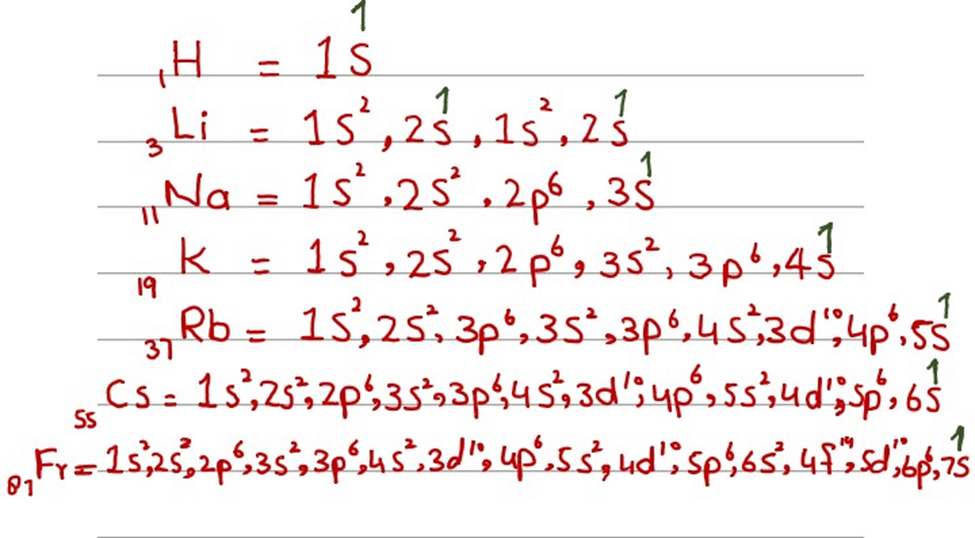 ₁H = 1S¹
₃Li = 1S², 2S¹, 1S², 2S¹
₁₁Na = 1S², 2S², 2p⁶, 3S¹
₁₉K = 1S², 2S², 2p⁶, 3S², 3p⁶, 4S¹
₃₇Rb = 1S², 2S², 3p⁶, 3S², 3p⁶, 4S², 3d¹⁰, 4p⁶, 5S¹
₅₅Cs = 1S², 2S², 2p⁶, 3S², 3p⁶, 4S², 3d¹⁰, 4p⁶, 5S², 4d¹⁰, 5p⁶, 6S¹
₈₇Fr = 1S², 2S², 2p⁶, 3S², 3p⁶, 4S², 3d¹⁰, 4p⁶, 5S², 4d¹⁰, 5p⁶, 6S², 4f¹⁴, 5d¹⁰, 6p⁶, 7S¹